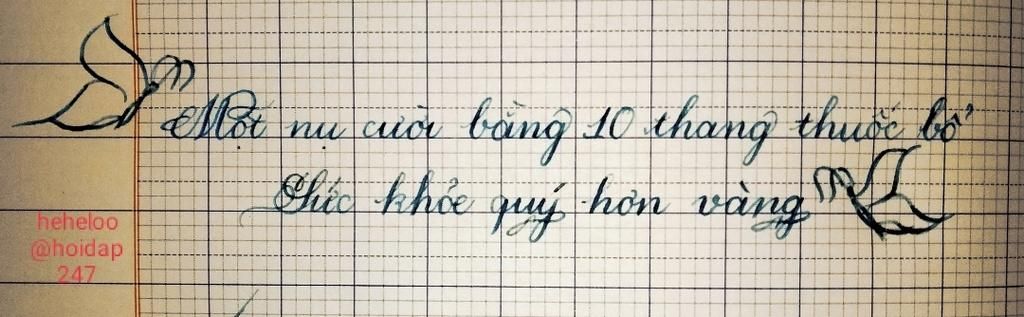 Một nụ cười bằng 10 thang thuốc bổ
Sức khỏe quý hơn vàng
heheloo
@hoidap
247